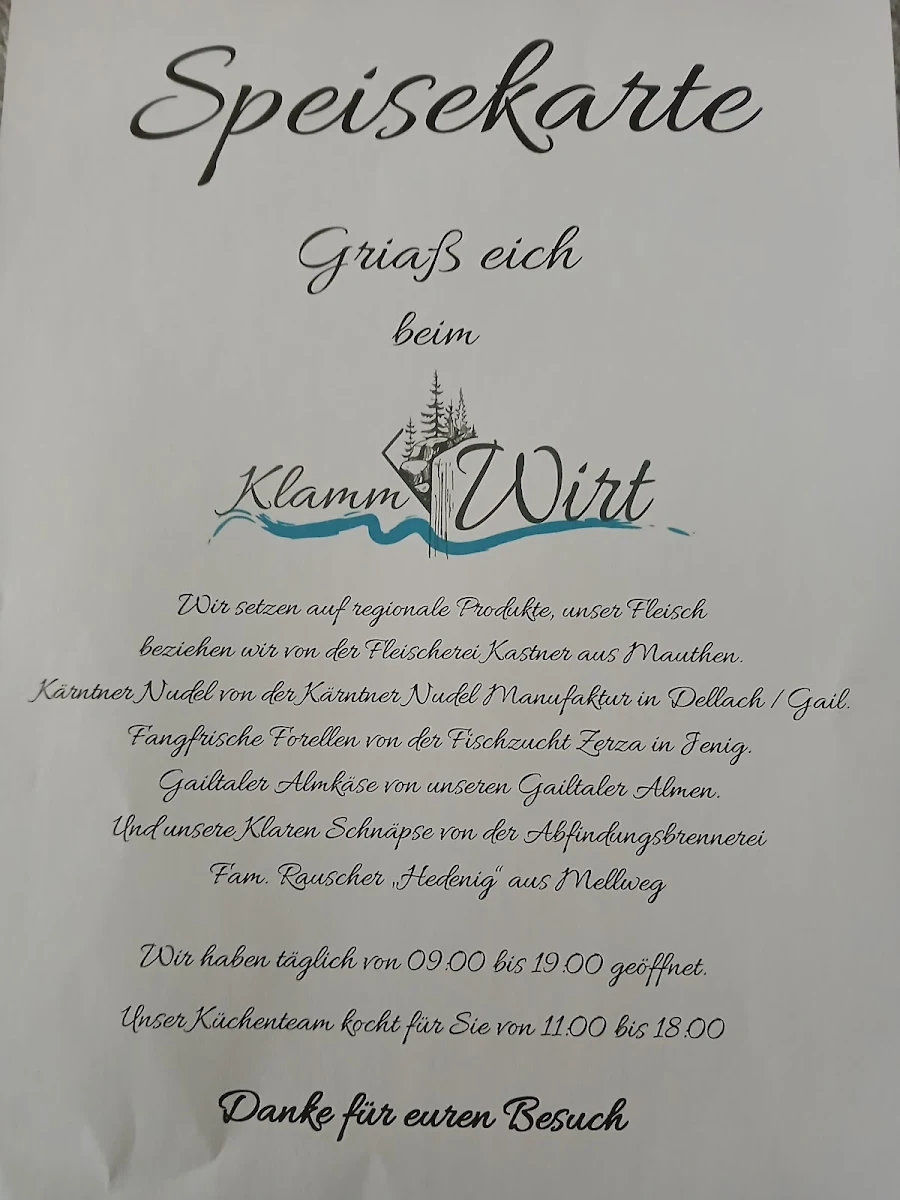 Speisekarte
Griaß eich
beim
Klamm Wirt
Wir setzen auf regionale Produkte, unser Fleisch
beziehen wir von der Fleischerei Kastner aus Mauthen.
Kärntner Nudel von der Kärntner Nudel Manufaktur in Dellach / Gail.
Fangfrische Forellen von der Fischzucht Zerza in Jenig.
Gailtaler Almkäse von unseren Gailtaler Almen.
Und unsere Klaren Schnäpse von der Abfindungsbrennerei
Fam. Rauscher „Hedenig“ aus Mellweg
Wir haben täglich von 09:00 bis 19:00 geöffnet.
Unser Küchenteam kocht für Sie von 11:00 bis 18:00
Danke für euren Besuch